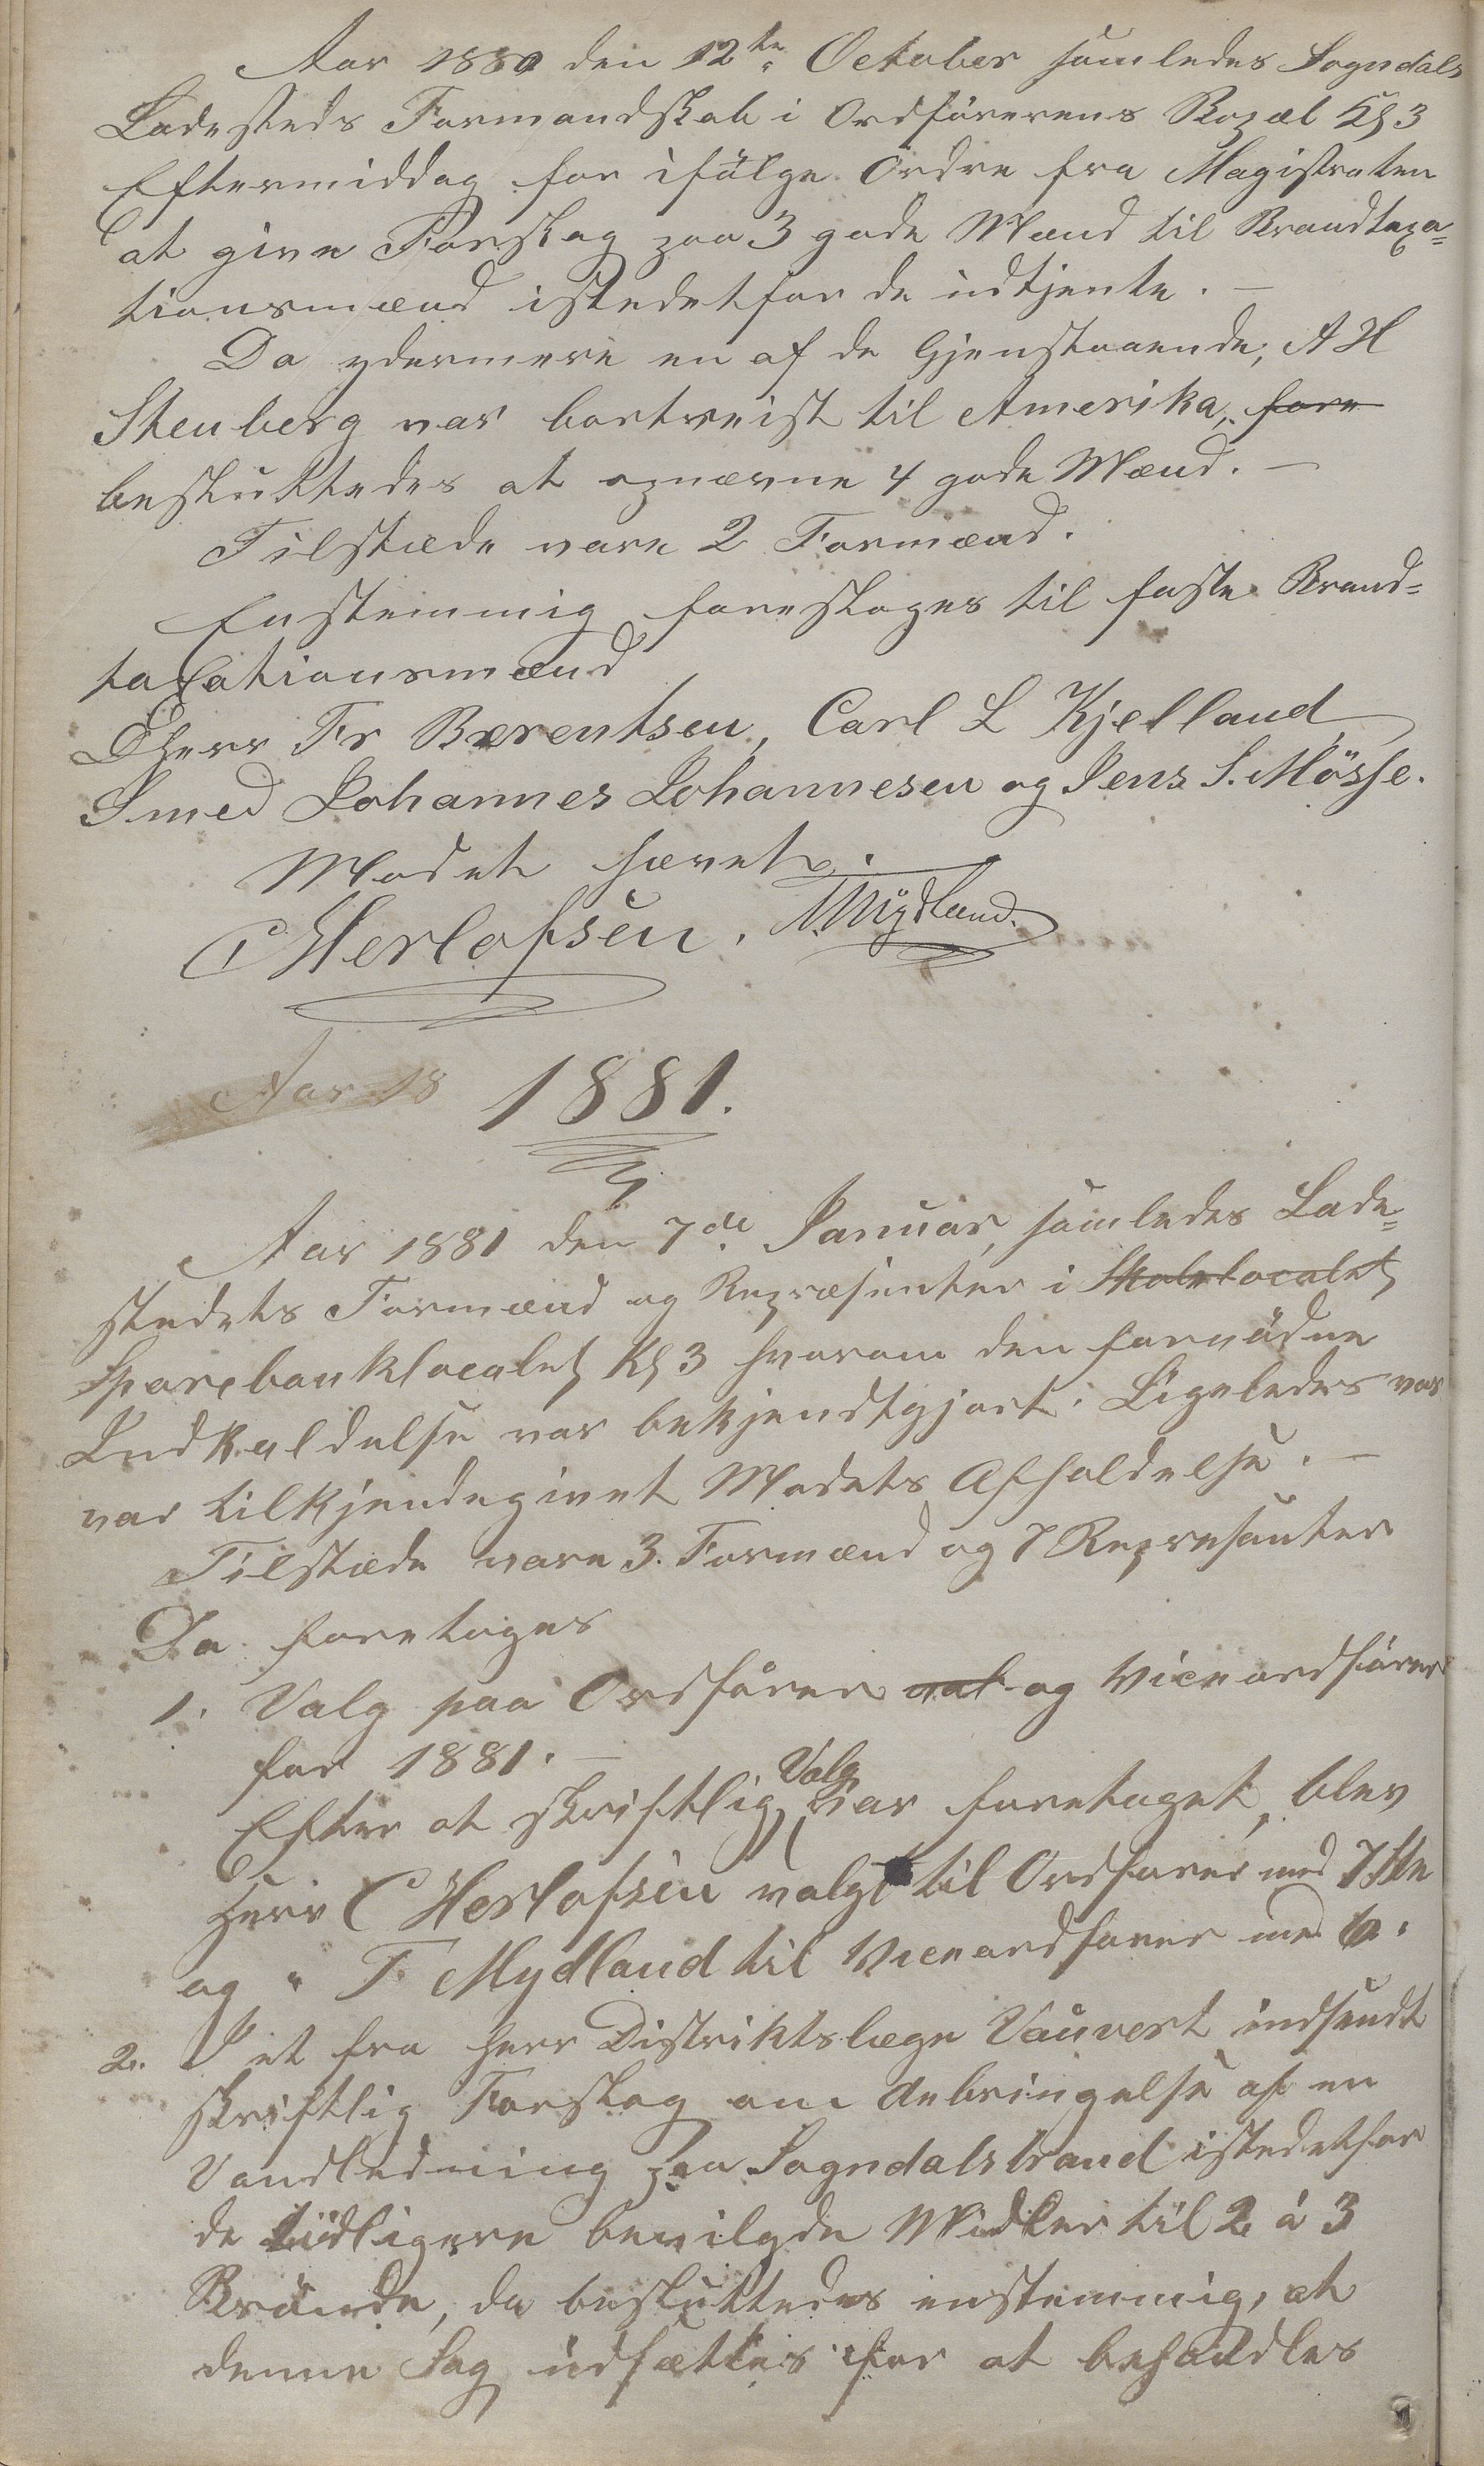 Aar 1880 den 12te October samledes Sogndals
Ladesteds Formandskab i Ordførerens Bopæl Kl 3
Eftermiddag for ifølge Ordre fra Magistraten
at give Forslag paa 3 gode Mænd til Brandtaxa=
tionsmænd istedetfor de udtjente. —
Da ydermere en af de Gjenstaaende, A H
Stenberg var bortreist til Amerika, fore
besluttedes at opnævne 4 gode Mænd. —
Tilstæde vare 2 Formænd.
Enstemmig foresloges til faste Brand=
taxationsmænd
DHerr Fr Bærentsen, Carl L Kjelland
Smed Johannes Johannesen og Jens S. Mösse.
Mødet hævet.
C Herlofsen. T. Mydland.
Aar 18 1881.
Aar 1881 den 7de Januar, samledes Lade=
stedets Formænd og Repræsenter i Skolelocalet
Sparebanklocalet Kl 3 hvorom den fornødne
Indkaldelse var bekjendtgjort. Ligeledes var
var tilkjendegivet Mødets Afholdelse. —
Tilstæde vare 3. Formænd og 7 Represanter
Da foretoges
1. Valg paa Ordfører val og Viceordfører
for 1881. —
Efter at skriftlig Valg var foretaget, blev
Herr C Herlofsen valgt til Ordfører med 7 Ste
og " T. Mydland til Viceordfører med 6.
2. I et fra Herr Distriktslæge Vauvert indsendt
skriftlig Forslag om Anbringelse af en
Vandledning paa Sogndalstrand istedetfor
de tidligere bevilgde Midler til 2 à 3
Brønde, da besluttedes enstemmig, at
denne Sag udsættes for at behandles